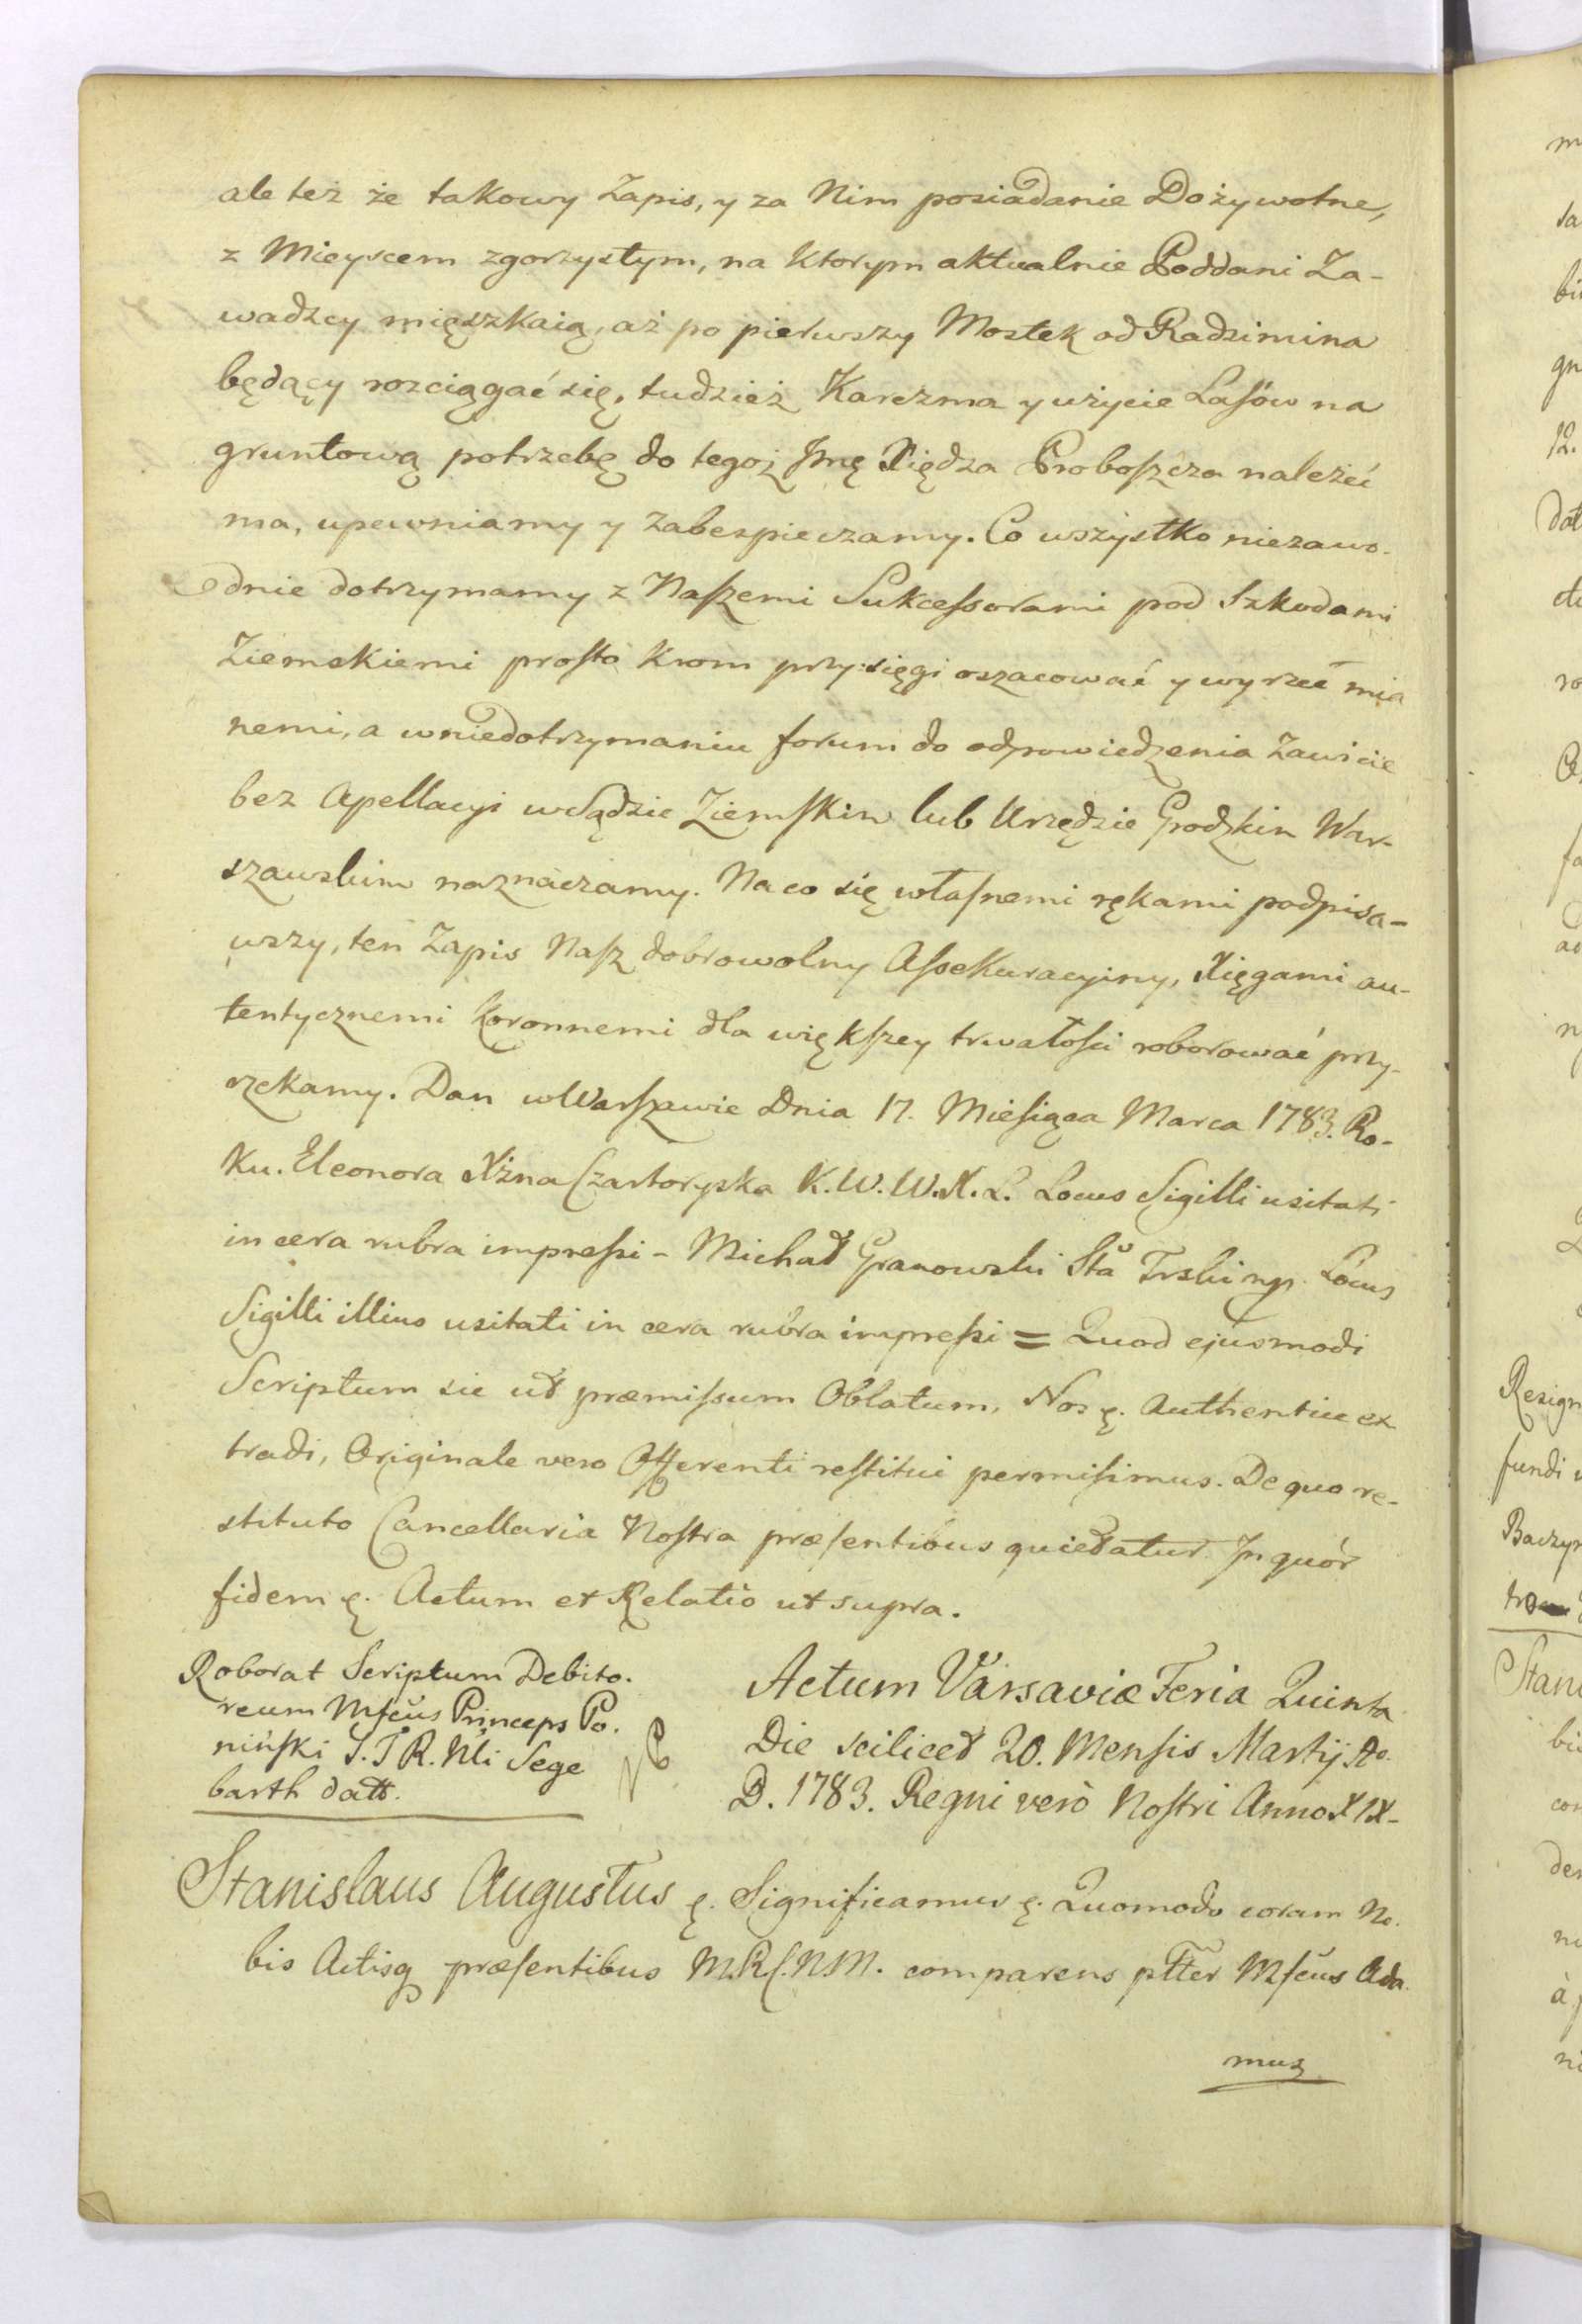 ale też że takowy Zapis, y za Nim posiadanie Dożywotne,
z Mieyscem zgorzystym, na Ktorym aktualnie Poddani Za-
wadzcy mięszkaią, aż po pierwszy Mostek od Radzimina
będący rozciągać się, tudzież Karczma y użycie Lasów na
gruntową potrzebę do tegoż Jmę Xiędza Proboszcza należeć
ma, upewniamy y zabespieczamy. Co wszystko niezawo-
dnie dotrzymamy z Naszemi Sukcessorami pod Szkodami
Ziemskiemi prosto Krom przysięgi oszacować y wyrzeć mia
nemi, a w niedotrzymaniu forum do odpowiedzenia Zawicie
bez Apellacyi w Sądzie Ziemskim lub Urzędzie Grodzkim War-
szawskim naznaczamy. Na co się własnemi rękami podpisa-
wszy, ten Zapis Nasz dobrowolny Assekuracyiny, Xięgami au-
tentycznemi Koronnemi dla większey trwałości roborować przy-
rzekamy. Dan w Warszawie Dnia 17. Miesiąca Marca 1783. Ro-
Ku. Eleonora Xżna Czartoryska K. W. W. X. L. Locus Sigilli usitati
in cera rubra impressi - Michał Granowski Sta Trski mp. Locus
Sigilli illius usitati in cera rubra impressi = Quod ejusmodi
Scriptum sic ut præmissum Oblatum, Nos ę. Authentice ex
tradi, Originale vero Offerenti restitui permisimus. De quo re-
stituto Cancellaria Nostra præsentibus quietatur. In quor
fidem ę. Actum et Relatio ut supra.
Roborat Scriptum Debito.
reum Mfcus Princeps Po.
niński S. T R. Nli Sege
barth datt.
Actum Varsaviæ Feria Quinta
Die scilicet 20. Mensis Martij Ao.
D. 1783. Regni verò Nostri Anno XIX-
Stanislaus Augustus ę. Significamus ę. Quomodo coram No.
bis Actisq præsentibus M.R.C.N.M. comparens ptter Mfcus Ada.
mus